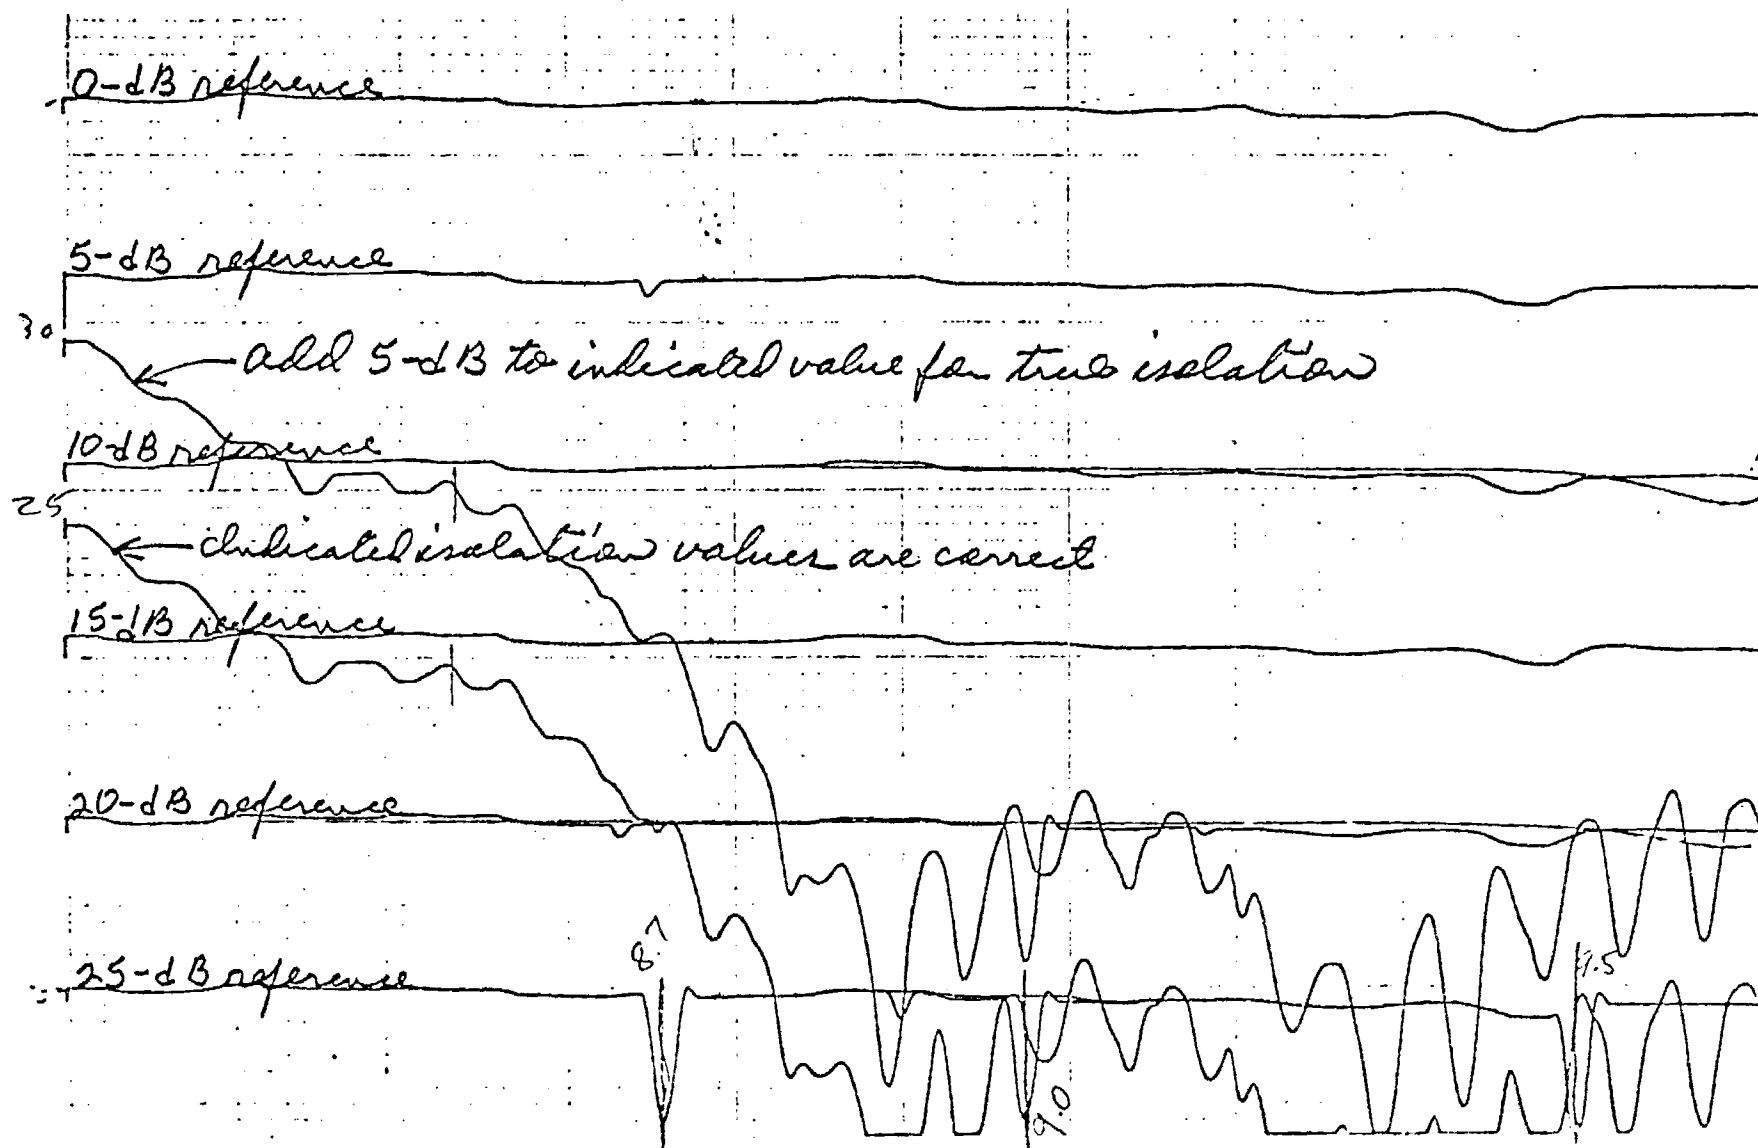 0-dB reference
5-dB reference
30
add 5-dB to indicated value for true isolation
10-dB reference
25
Indicated isolation values are correct
15-dB reference
20-dB reference
8.7
25-dB reference
9.5
9.0